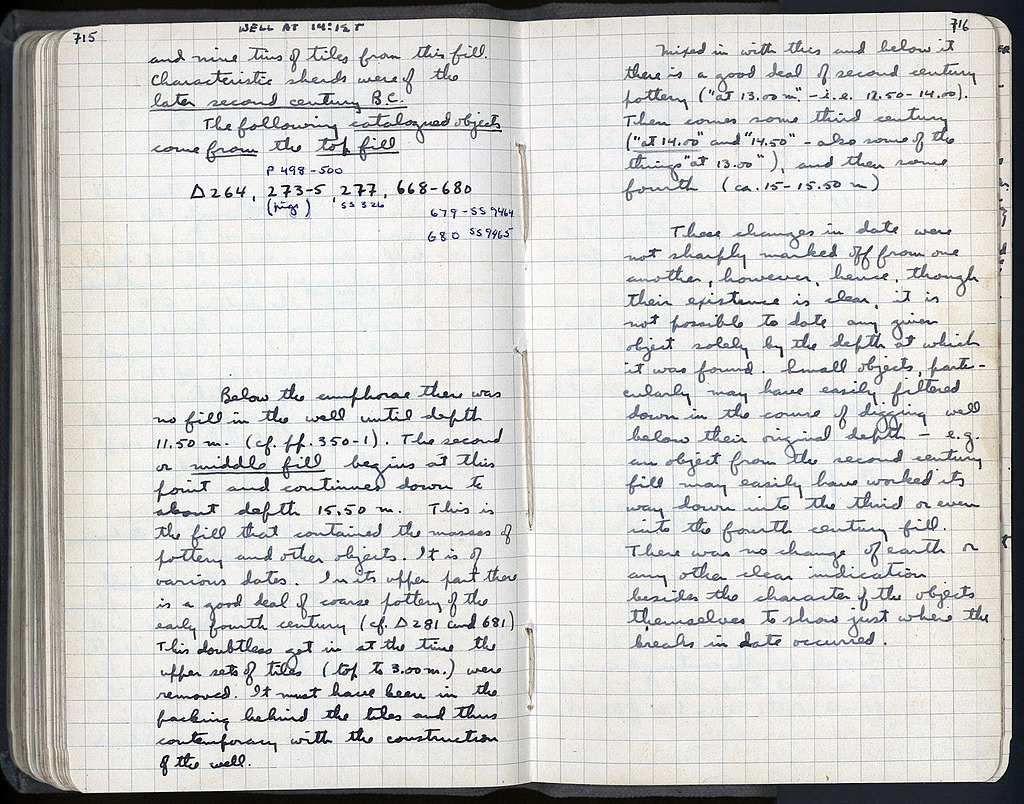 715
WELL AT 14:15T
and nine tins of tiles from this fill.
Characteristic sherds were of the
later second century B.C.
The following catalogued objects
come from the top fill
P 498-500
Δ264, 273-5, 277, 668-680
(pigs) SS 326
679 - SS 9464
680 SS 9465
Below the amphorae there was
no fill in the well until depth
11.50 m. (cf. pp. 350-1). The second
or middle fill begins at this
point and continues down to
about depth 15.50 m. This is
the fill that contained the masses of
pottery and other objects. It is of
various dates. In its upper part there
is a good deal of coarse pottery of the
early fourth century (cf. Δ281 and 681)
This doubtless got in at the time the
upper sets of tiles (top to 3.00 m.) were
removed. It must have been in the
packing behind the tiles and thus
contemporary with the construction
of the well.
716
Mixed in with this and below it
there is a good deal of second century
pottery ("at 13.00 m" - i.e. 12.50-14.00).
Then comes some third century
("at 14.00" and "14.50" - also some of the
things "at 13.00"), and then some
fourth (ca. 15-15.50 m)
These changes in date were
not sharply marked off from one
another, however, hence, though
their existence is clear, it is
not possible to date any given
object solely by the depth at which
it was found. Small objects, parti-
cularly may have easily filtered
down in the course of digging well
below their original depth - e.g.
an object from the second century
fill may easily have worked its
way down into the third or even
into the fourth century fill.
There was no change of earth or
any other clear indication
besides the character of the objects
themselves to show just where the
breaks in date occurred.